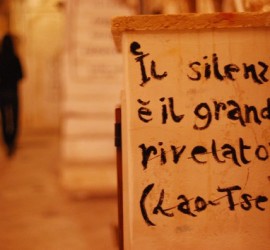 Il silenz
è il grand
rivelato
(Lao-Tse